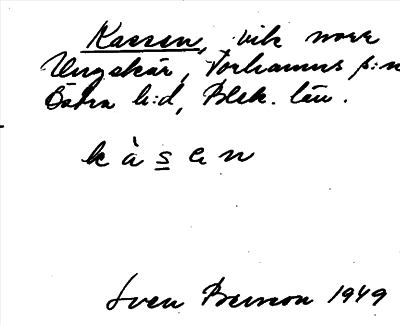 Kaesen, vik norr
Ungskär, Torhamns s:n
Östra h:d, Blek. län.
k à s e n
Sven Benson 1949